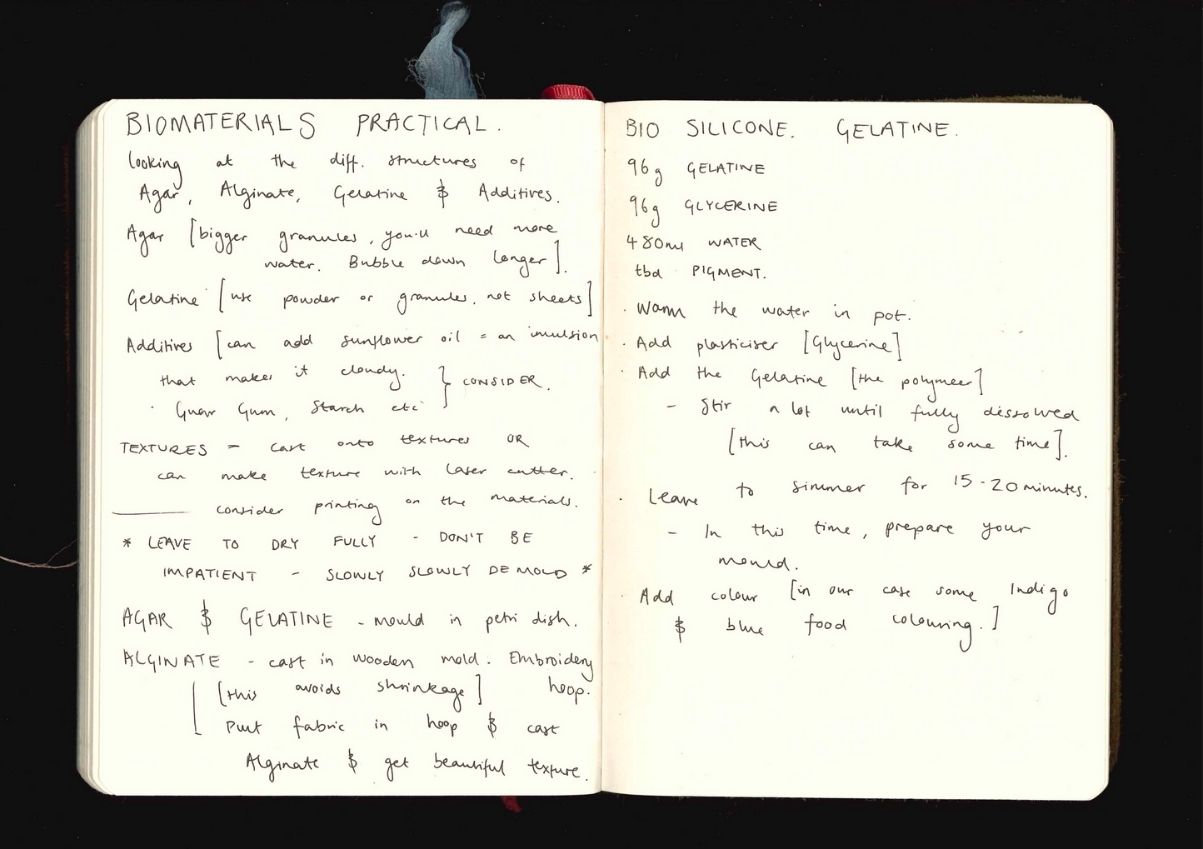 BIOMATERIALS PRACTICAL.
looking at the diff. structures of
Agar, Alginate, Gelatine & Additives.
Agar [bigger granules, you'll need more
water. Bubble down longer].
Gelatine [use powder or granules. not sheets]
Additives [can add sunflower oil = an imulsion
that makes it cloudy. } CONSIDER.
· Guar Gum, Starch etc
TEXTURES - cast onto textures OR
can make texture with laser cutter.
consider printing on the materials.
* LEAVE TO DRY FULLY - DON'T BE
IMPATIENT - SLOWLY SLOWLY DEMOLD *
AGAR & GELATINE - mould in petri dish.
ALGINATE - cast in wooden mold. Embroidery
[this avoids shrinkage] hoop.
Put fabric in hoop & cast
Alginate & get beautiful texture.
BIO SILICONE. GELATINE.
96g GELATINE
96g GLYCERINE
480ml WATER
tbd PIGMENT.
· Warm the water in pot.
· Add plasticiser [Glycerine]
· Add the Gelatine [the polymeer]
- Stir a lot until fully dissolved
[this can take some time].
· Leave to simmer for 15-20 minutes.
- In this time, prepare your
mould.
· Add colour [in our case some Indigo
& blue food colouring.]